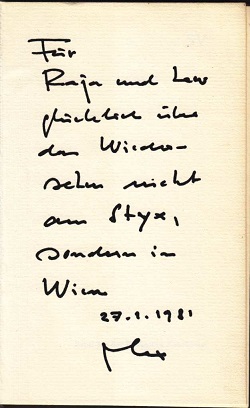 Für
Raja und Lew
glücklich über
das Wieder-
sehn nicht
am Styx,
sondern in
Wien
27.1.1981